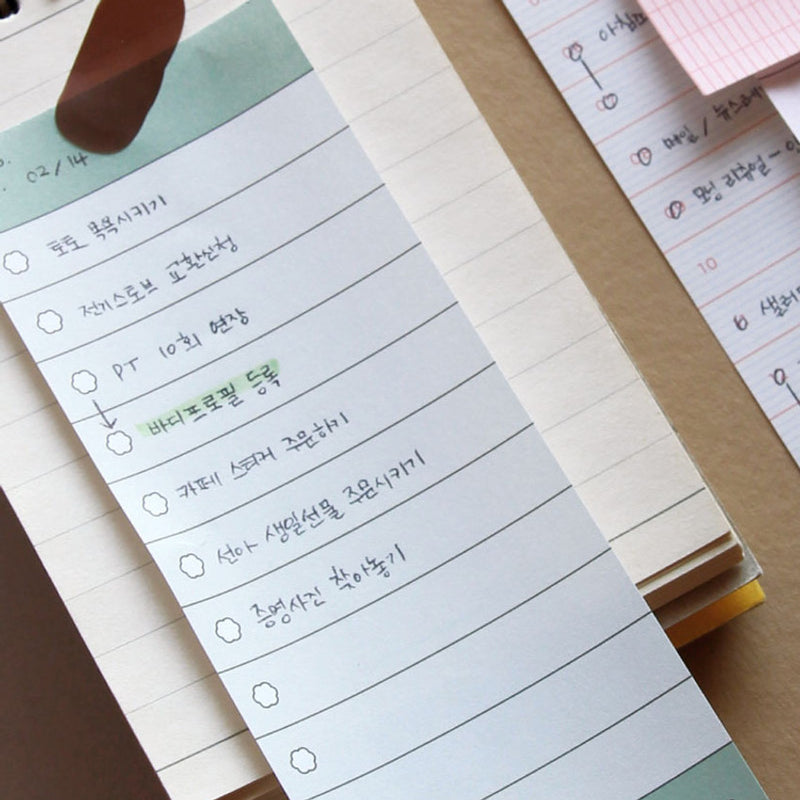 02/14
토토 목욕시키기
전기스토브 교환신청
PT 10회 연장
바디프로필 등록
카페 스티커 주문하기
선아 생일선물 주문시키기
증명사진 찾아놓기
메일 /
모닝 리추얼 ~
10